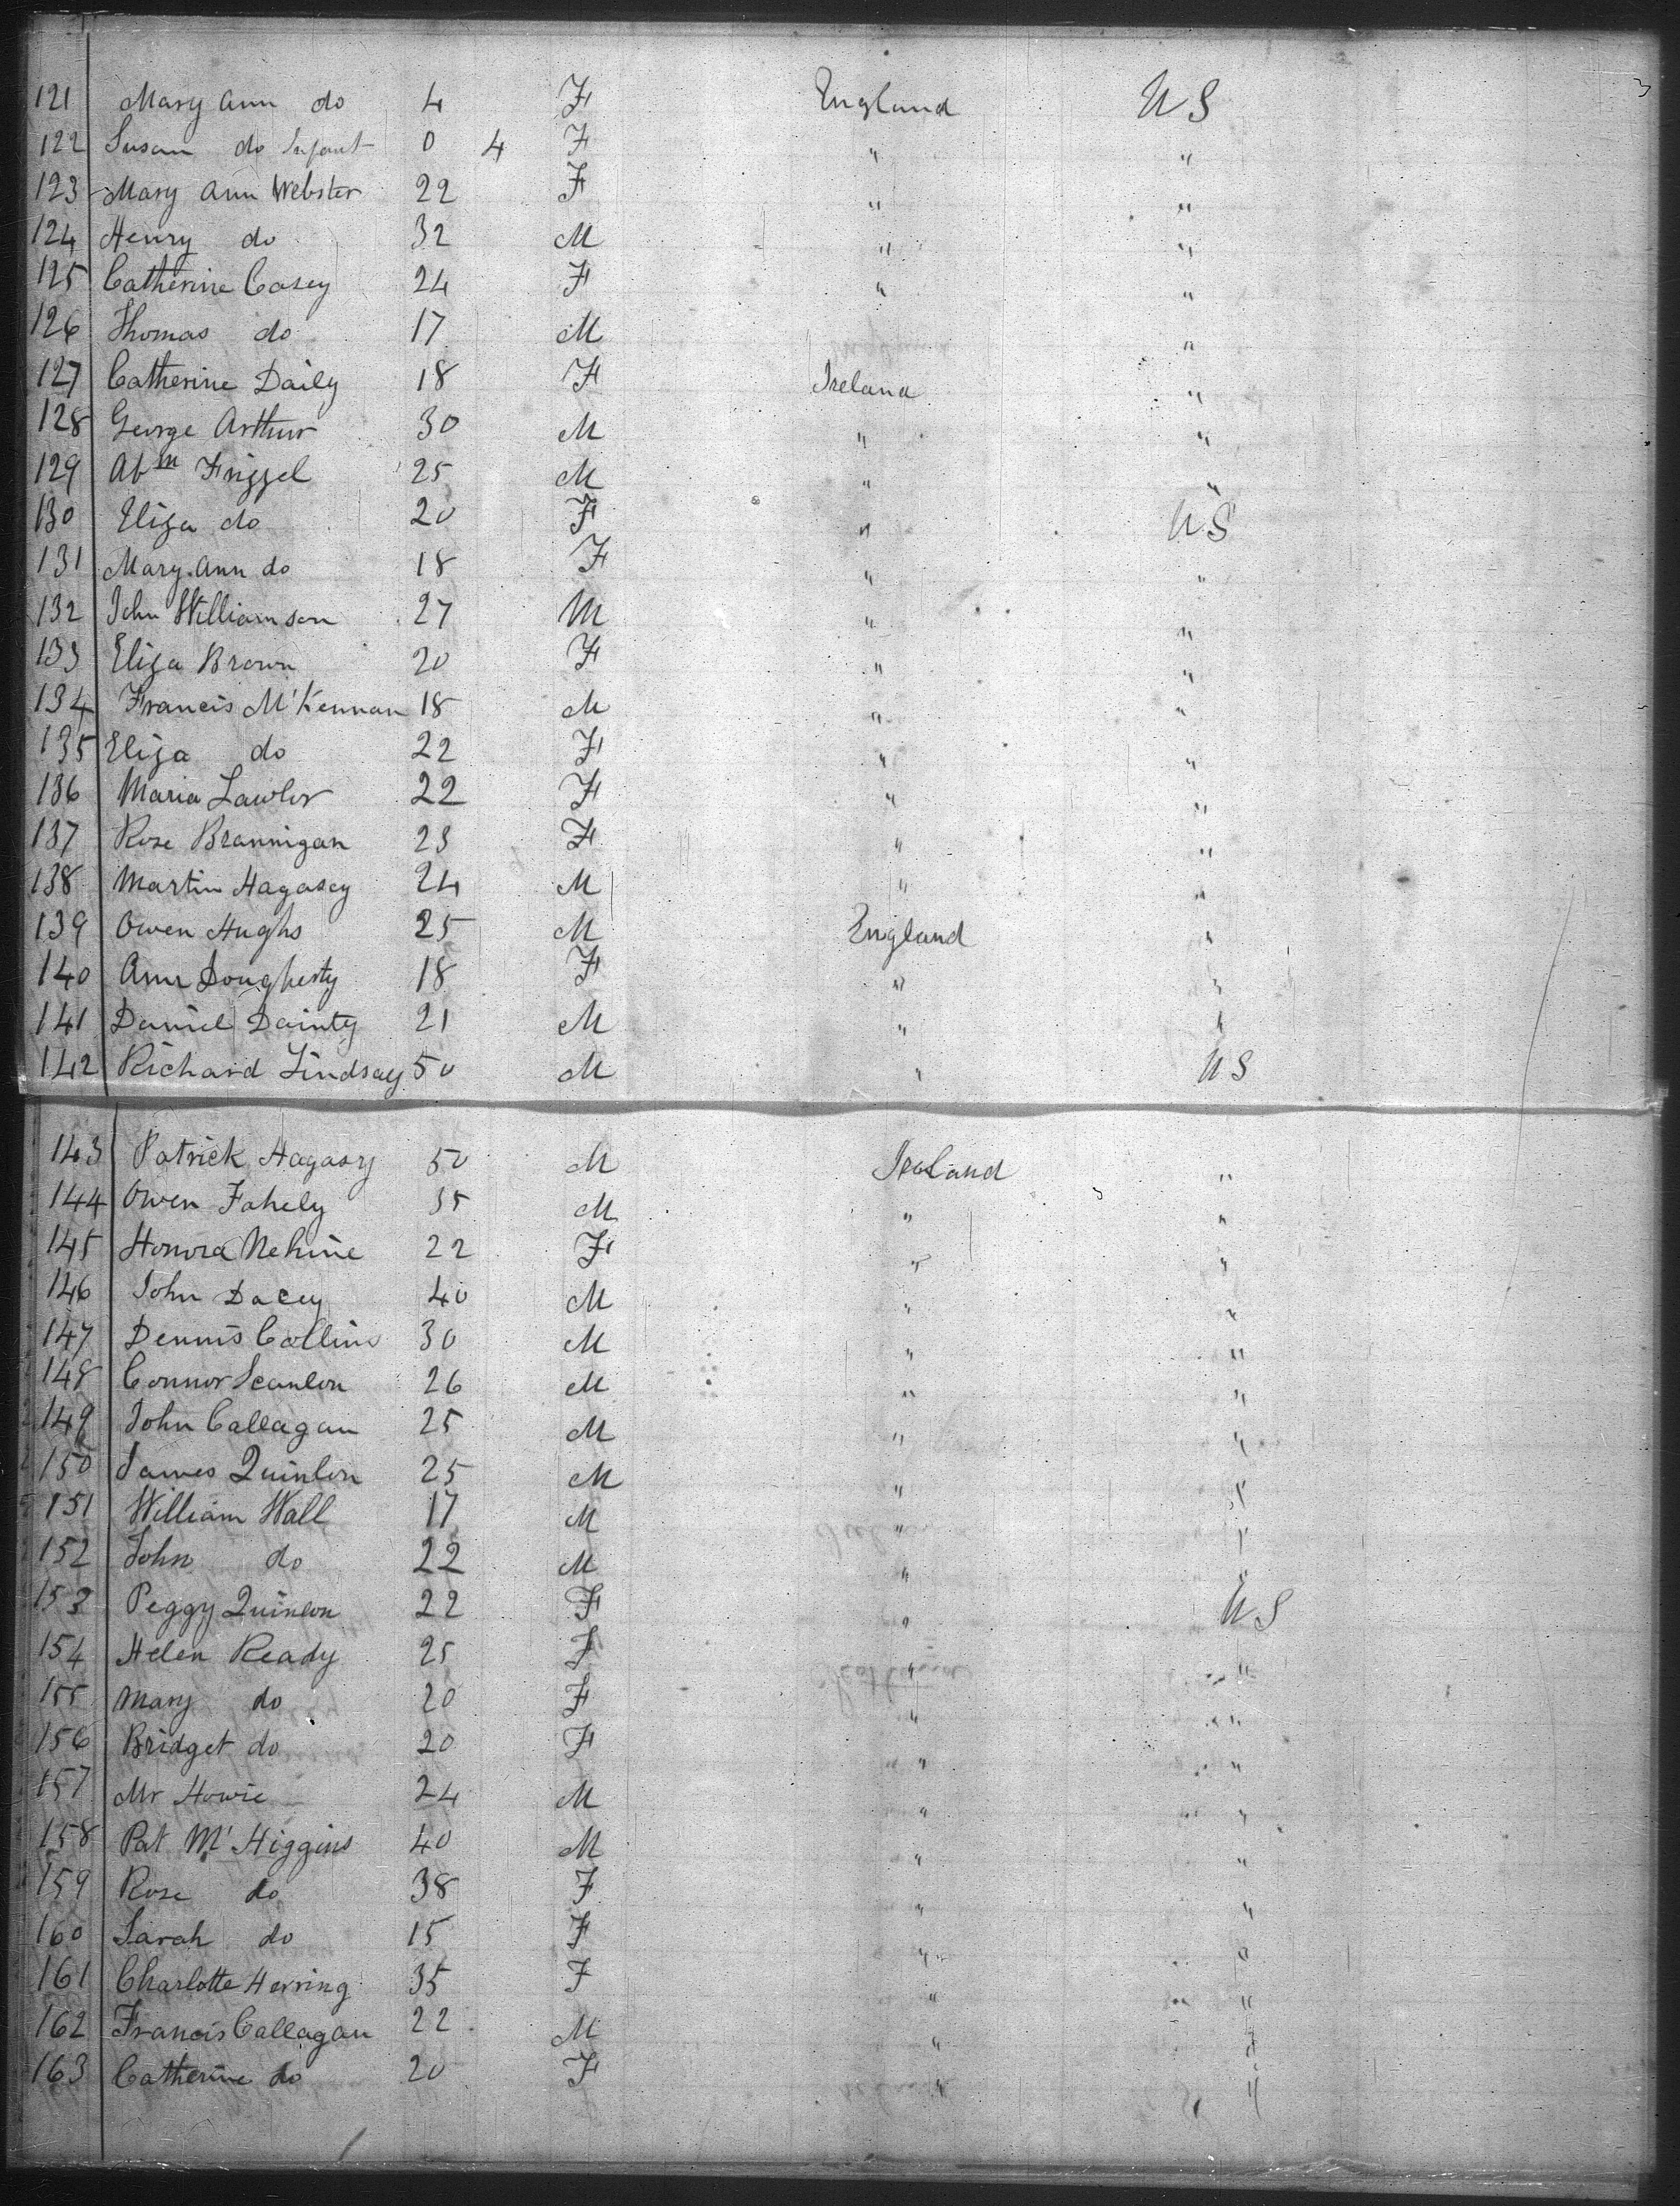 121 Mary Ann do 4 F England U S
122 Susan do Infant 0 4 F " "
123 Mary Ann Webster 22 F " "
124 Henry do 32 M " "
125 Catherine Casey 24 F " "
126 Thomas do 17 M "
127 Catherine Daily 18 F Ireland "
128 George Arthur 30 M " "
129 Abm Frizzel 25 M " "
130 Eliza do 20 F " U S
131 Mary Ann do 18 F " "
132 John Williamson 27 M " "
133 Eliza Brown 20 F " "
134 Francis M'Kennan 18 M " "
135 Eliza do 22 F " "
136 Maria Lawlor 22 F " "
137 Rose Brannigan 23 F " "
138 Martin Hagasey 24 M " "
139 Owen Hughs 25 M England "
140 Ann Dougherty 18 F " "
141 Daniel Dainty 21 M " "
142 Richard Lindsay 50 M " U S
143 Patrick Hagasy 50 M Ireland "
144 Owen Fahely 35 M " "
145 Honora Nehine 22 F " "
146 John Dacey 40 M " "
147 Dennis Collins 30 M " "
148 Connor Scanlon 26 M " "
149 John Callagan 25 M " "
150 James Quinlon 25 M " "
151 William Wall 17 M " "
152 John do 22 M " "
153 Peggy Quinlon 22 F " U S
154 Helen Ready 25 F " "
155 Mary do 20 F " "
156 Bridget do 20 F " "
157 Mr Howie 24 M " "
158 Pat M'Higgins 40 M " "
159 Rose do 38 F " "
160 Sarah do 15 F " "
161 Charlotte Herring 35 F " "
162 Francis Callagan 22 M " "
163 Catherine do 20 F " "